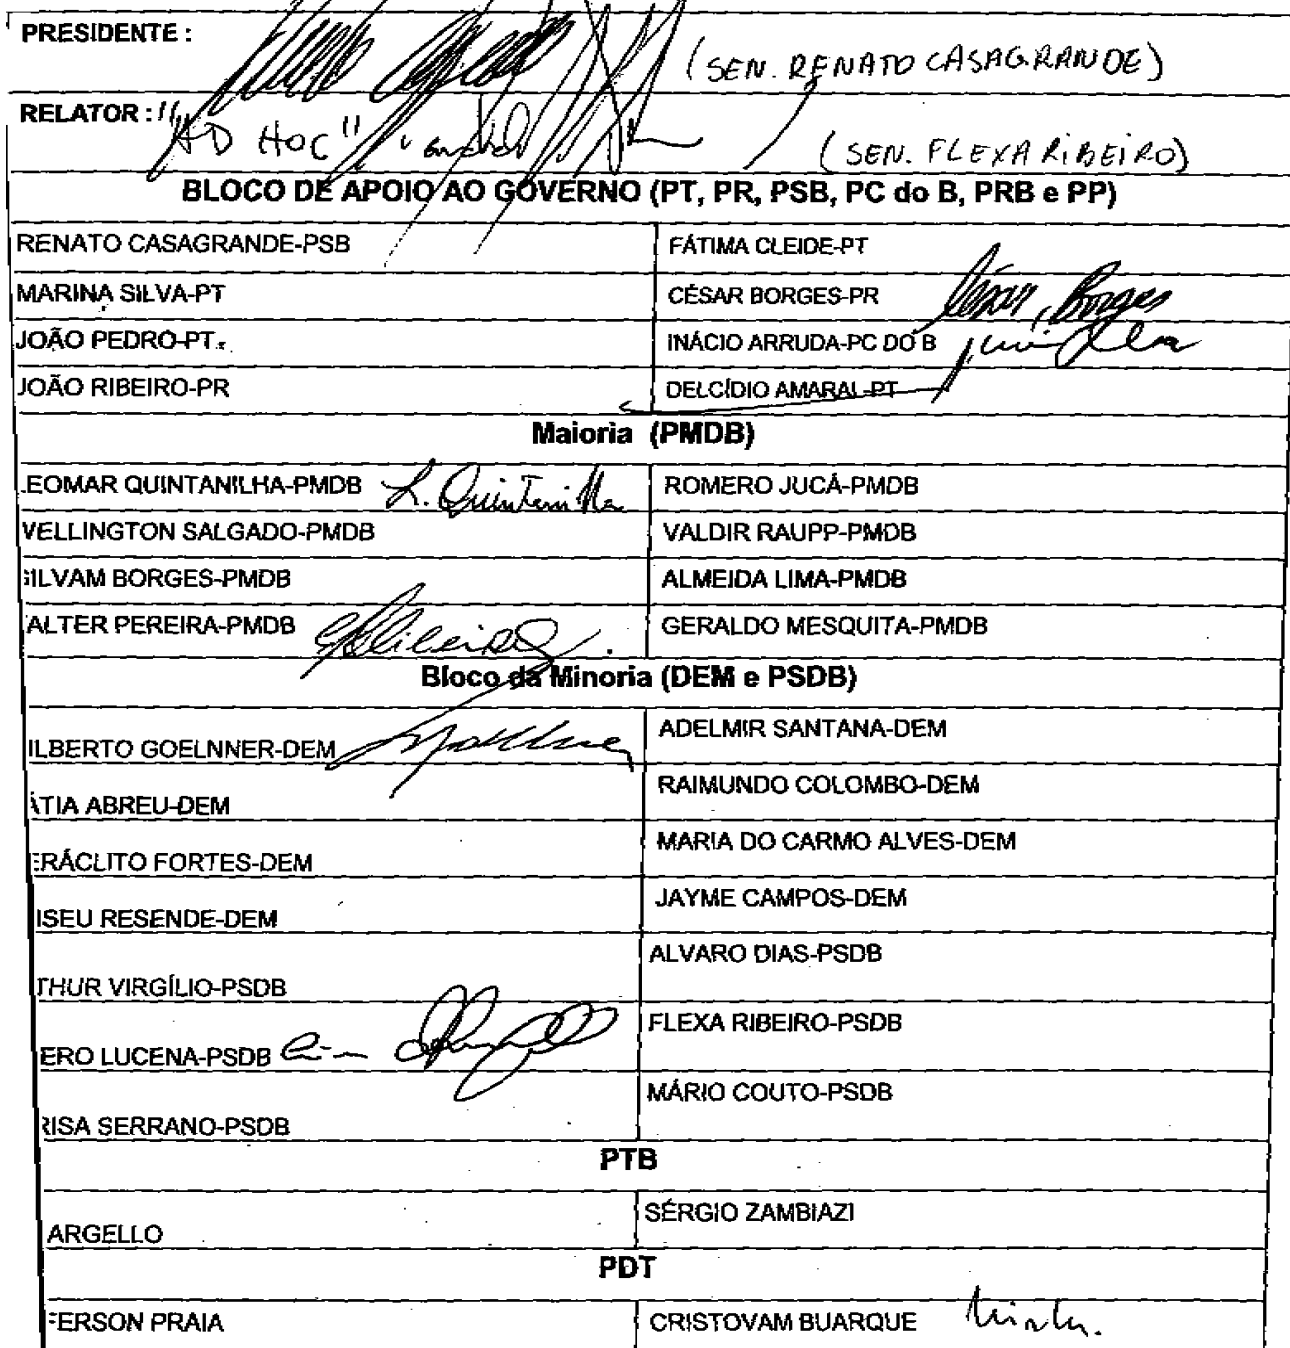 PRESIDENTE :
(SEN. RENATO CASAGRANDE)
RELATOR :
"AD HOC"
(SEN. FLEXA RIBEIRO)
BLOCO DE APOIO AO GOVERNO (PT, PR, PSB, PC do B, PRB e PP)
RENATO CASAGRANDE-PSB FÁTIMA CLEIDE-PT
MARINA SILVA-PT CÉSAR BORGES-PR César Borges
JOÃO PEDRO-PT INÁCIO ARRUDA-PC DO B
JOÃO RIBEIRO-PR DELCÍDIO AMARAL-PT
Maioria (PMDB)
EOMAR QUINTANILHA-PMDB L. Quintanilha ROMERO JUCÁ-PMDB
VELLINGTON SALGADO-PMDB VALDIR RAUPP-PMDB
ILVAM BORGES-PMDB ALMEIDA LIMA-PMDB
ALTER PEREIRA-PMDB GERALDO MESQUITA-PMDB
Bloco da Minoria (DEM e PSDB)
ILBERTO GOELNNER-DEM ADELMIR SANTANA-DEM
ÁTIA ABREU-DEM RAIMUNDO COLOMBO-DEM
ERÁCLITO FORTES-DEM MARIA DO CARMO ALVES-DEM
ISEU RESENDE-DEM JAYME CAMPOS-DEM
THUR VIRGÍLIO-PSDB ALVARO DIAS-PSDB
ERO LUCENA-PSDB FLEXA RIBEIRO-PSDB
RISA SERRANO-PSDB MÁRIO COUTO-PSDB
PTB
ARGELLO SÉRGIO ZAMBIAZI
PDT
FERSON PRAIA CRISTOVAM BUARQUE